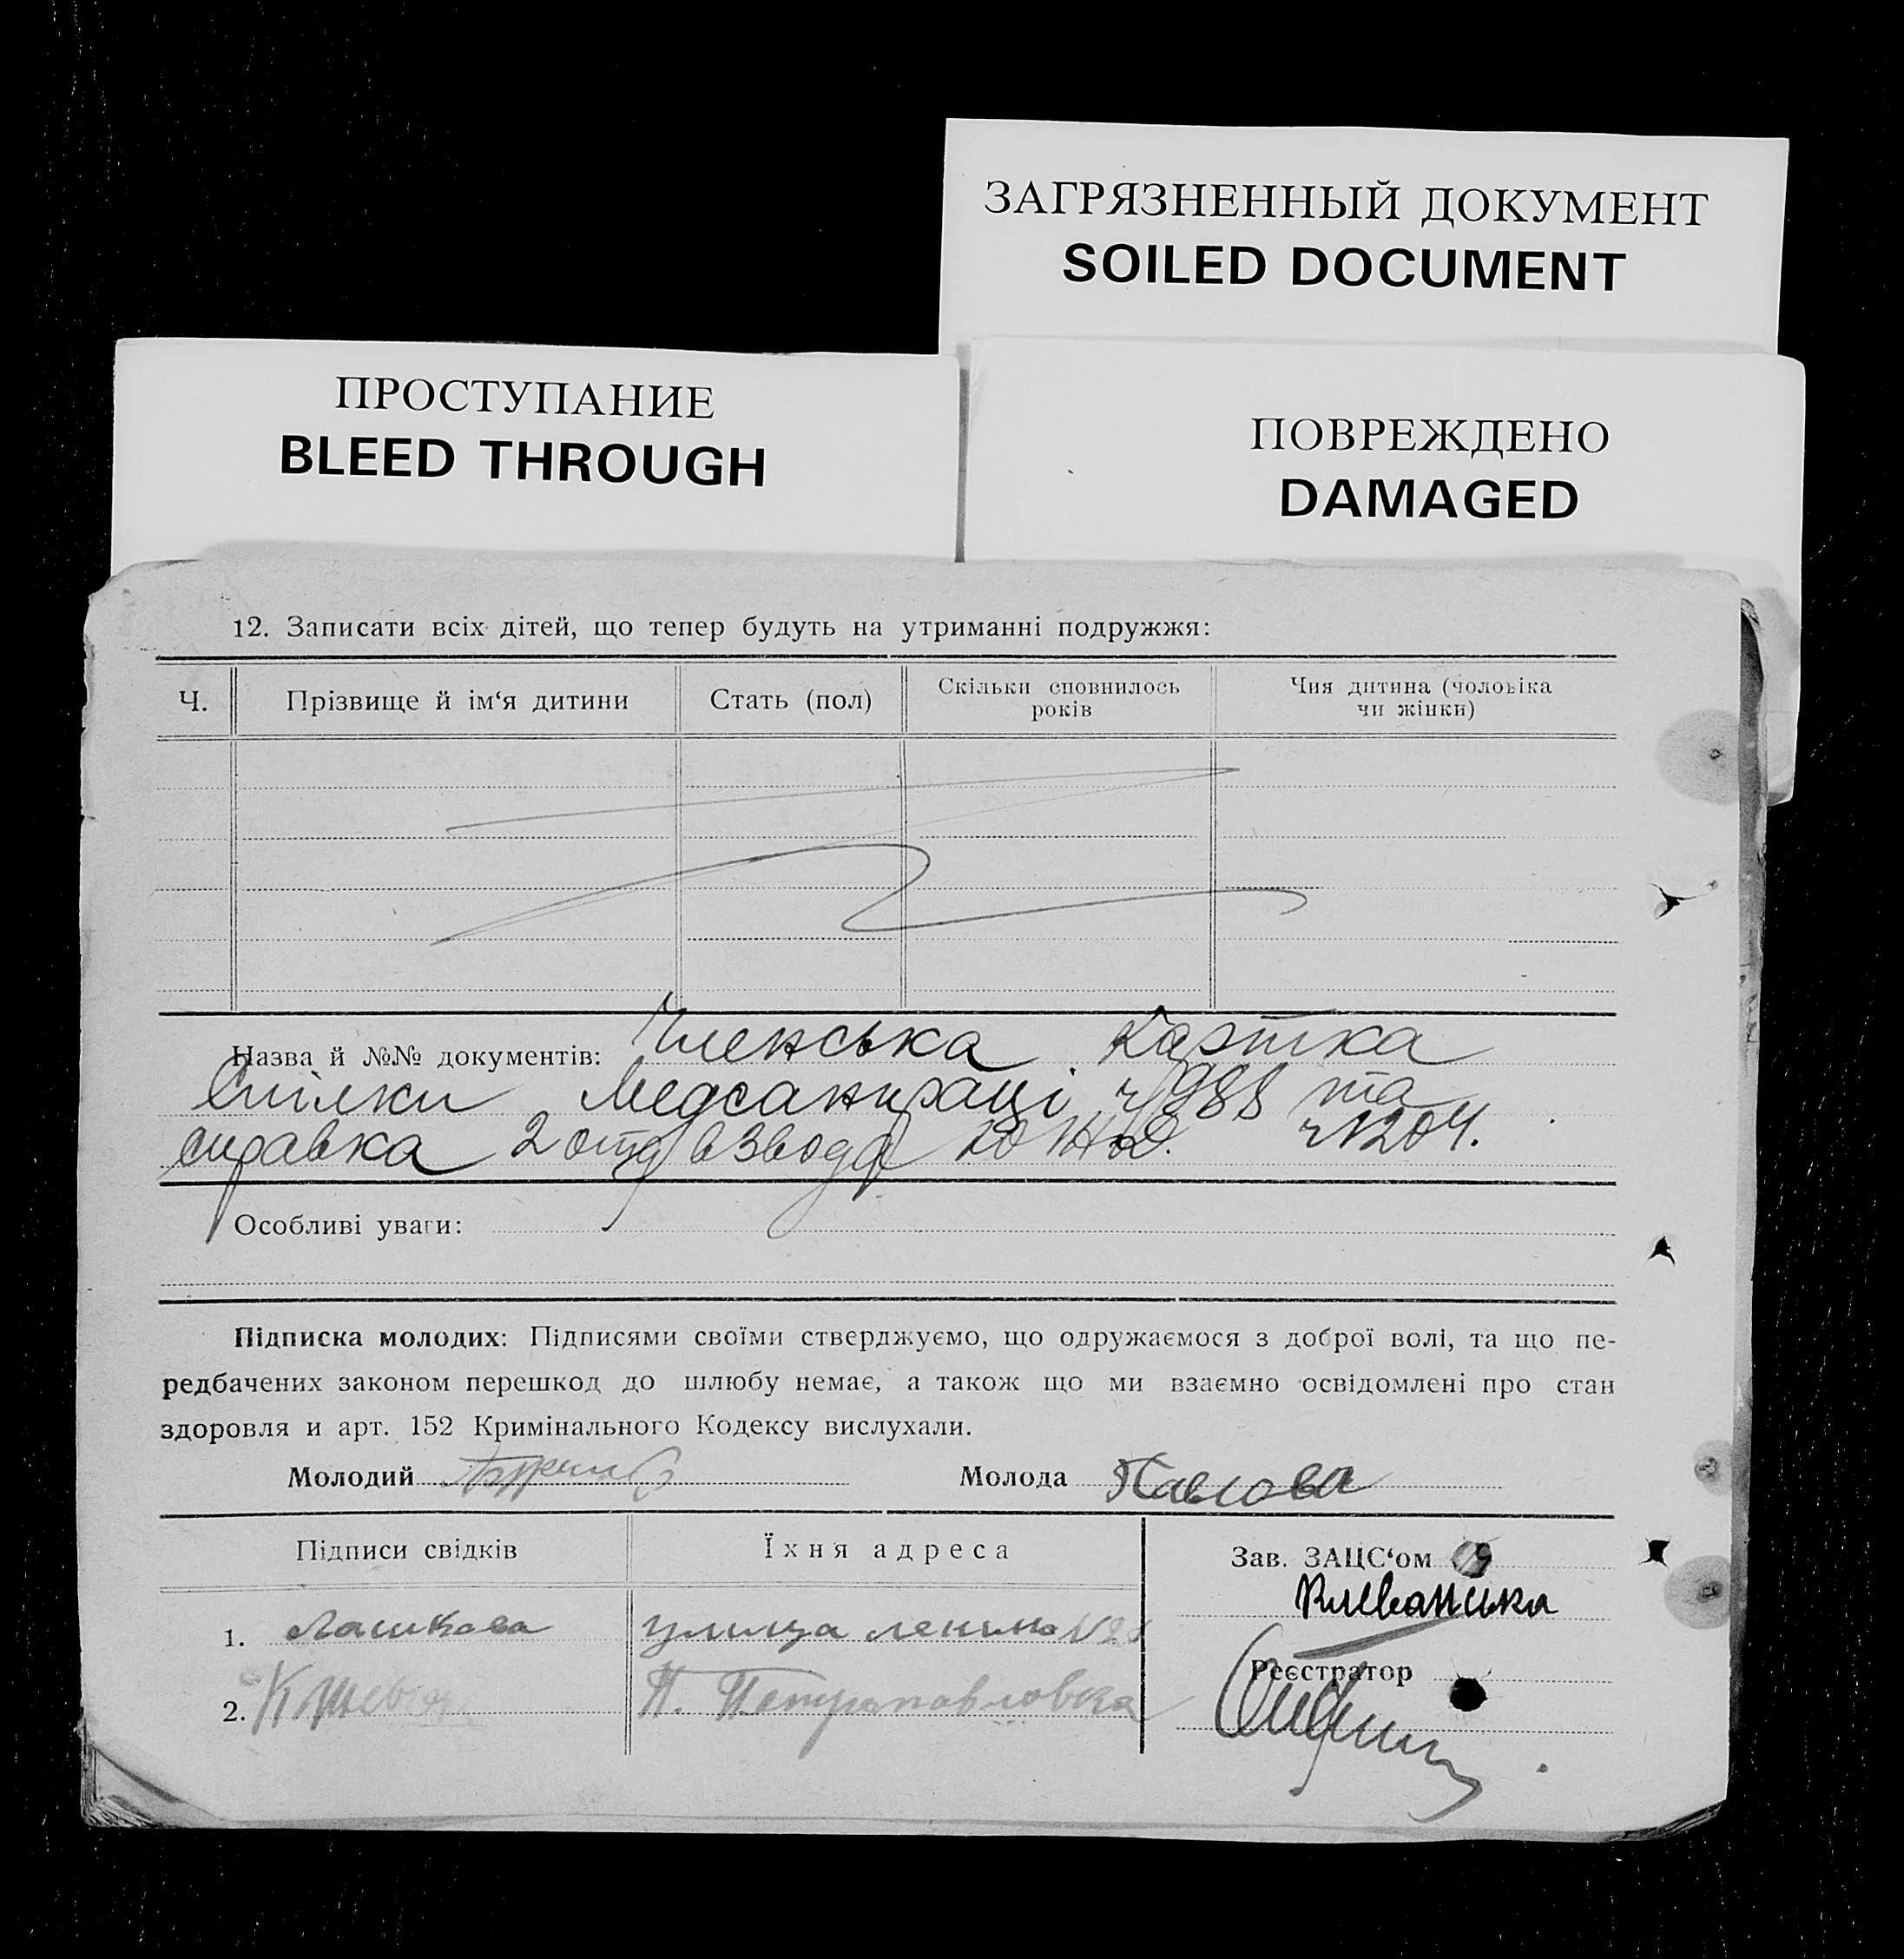 ЗАГРЯЗНЕННЫЙ ДОКУМЕНТ
SOILED DOCUMENT
ПРОСТУПАНИЕ
BLEED THROUGH
ПОВРЕЖДЕНО
DAMAGED
12. Записати всіх дітей, що тепер будуть на утриманні подружжя:
Ч. Прізвище й ім‘я дитини Стать (пол) Скільки сповнилось років Чия дитина (чоловіка чи жінки)
Назва й №№ документів: Членська картка
Спілки Медсанпраці та
справка 2 взвода ч 1204.
Особливі уваги:
Підписка молодих: Підписями своїми стверджуємо, що одружаємося з доброї волі, та що пе-
редбачених законом перешкод до шлюбу немає, а також що ми взаємно освідомлені про стан
здоровля и арт. 152 Кримінального Кодексу вислухали.
Молодий Молода Павлова
Підписи свідків Їхня адреса Зав. ЗАЦС‘ом
Клеванська
1. Лашкова улица ленина
Реєстратор
2. П. Петропавловка